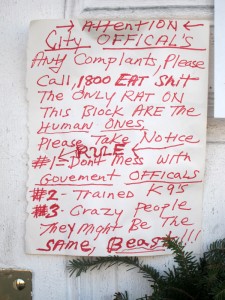 → Attention ←
City OFFICAL'S
Any Complants, Please
Call, 1800 EAT Shit
The ONLY RAT ON
This Block ARE The
Human ONES,
Please Take Notice
RULE
#1- Don't mess with
Govement OFFICALS
#2- Trained K9's
#3- Crazy People
They might Be The
SAME, Beast!!!